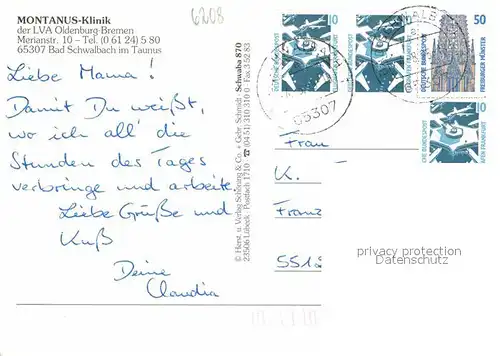 MONTANUS-Klinik
der LVA Oldenburg-Bremen
Merianstr. 10 – Tel. (0 61 24) 5 80
65307 Bad Schwalbach im Taunus
6208
Liebe Mama!
Damit Du weißt,
wo ich all' die
Stunden des Tages
verbringe und arbeite.
Liebe Grüße und
Kuß
Deine
Claudia
Schwalba 870
© Herst. u. Verlag Schöning & Co. + Gebr. Schmidt
23506 Lübeck Postfach 1710 ☎ (04 51) 310 310 Fax 3 52 83
10
50
DEUTSCHE BUNDESPOST
FREIBURGER MÜNSTER
65307
10
Frau
K.
Franz
551
privacy protection
Datenschutz